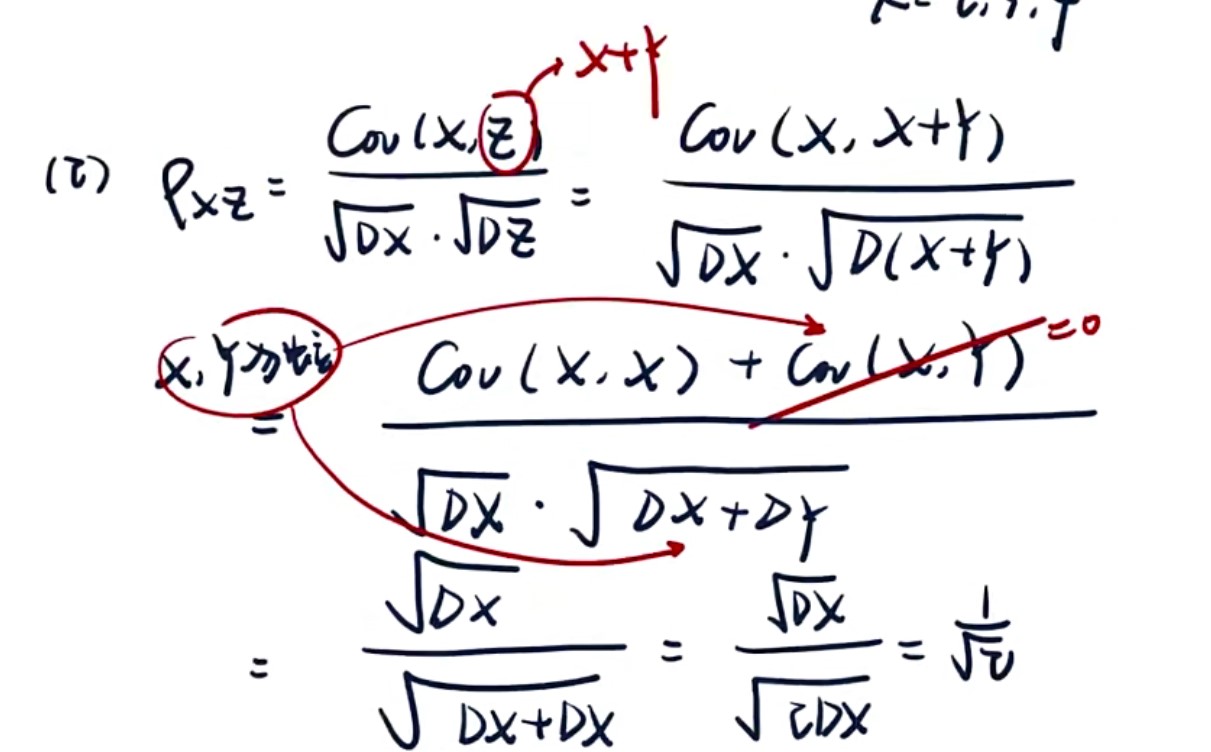 X+Y
(2) ρ_{XZ} = \frac{Cov(X, Z)}{\sqrt{DX} · \sqrt{DZ}} = \frac{Cov(X, X+Y)}{\sqrt{DX} · \sqrt{D(X+Y)}}
X, Y 独立
= \frac{Cov(X, X) + Cov(X, Y)}{\sqrt{DX} · \sqrt{DX+DY}} =0
= \frac{\sqrt{DX}}{\sqrt{DX+DX}} = \frac{\sqrt{DX}}{\sqrt{2DX}} = \frac{1}{\sqrt{2}}